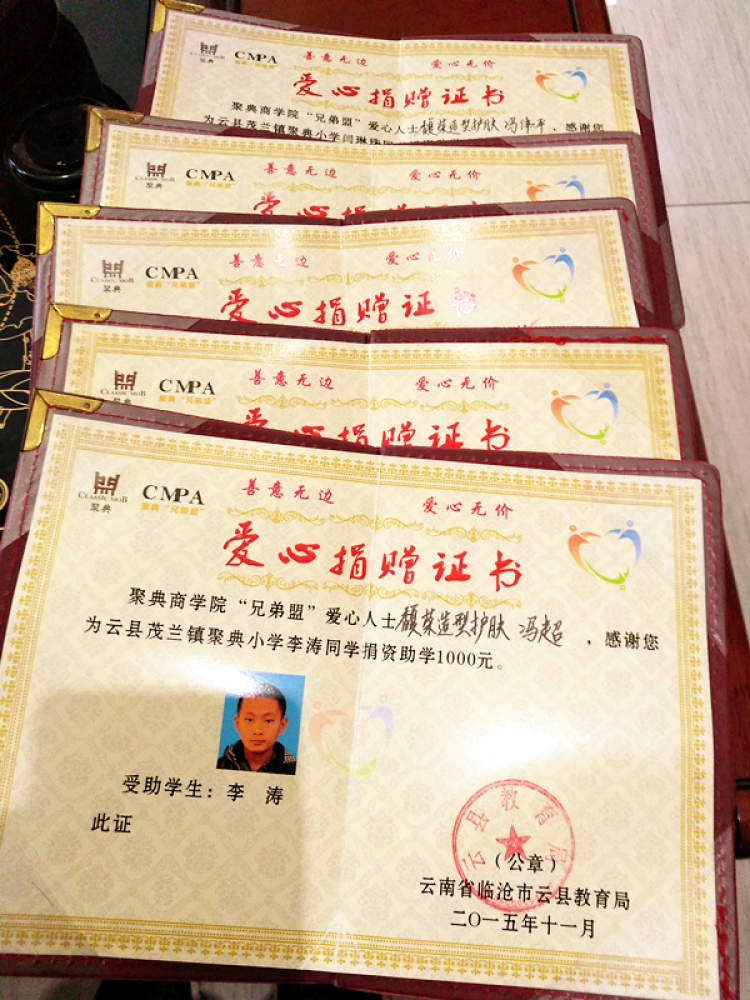 CLASSIC MOB
聚典
CMPA
聚典“兄弟盟”
善意无边 爱心无价
爱心捐赠证书
聚典商学院“兄弟盟”爱心人士 造型护肤 冯 平，感谢您
为云县茂兰镇聚典小学闫琳
CLASSIC MOB
聚典
CMPA
聚典“兄弟盟”
善意无边 爱心无价
CLASSIC MOB
聚典
CMPA
聚典“兄弟盟”
善意无边 爱心无价
爱心捐赠证书
CLASSIC MOB
聚典
CMPA
聚典“兄弟盟”
善意无边 爱心无价
爱心捐赠证书
CLASSIC MOB
聚典
CMPA
聚典“兄弟盟”
善意无边 爱心无价
爱心捐赠证书
聚典商学院“兄弟盟”爱心人士 造型护肤 冯超，感谢您
为云县茂兰镇聚典小学李涛同学捐资助学1000元。
受助学生：李 涛
此证
云县教育局
（公章）
云南省临沧市云县教育局
二〇一五年十一月